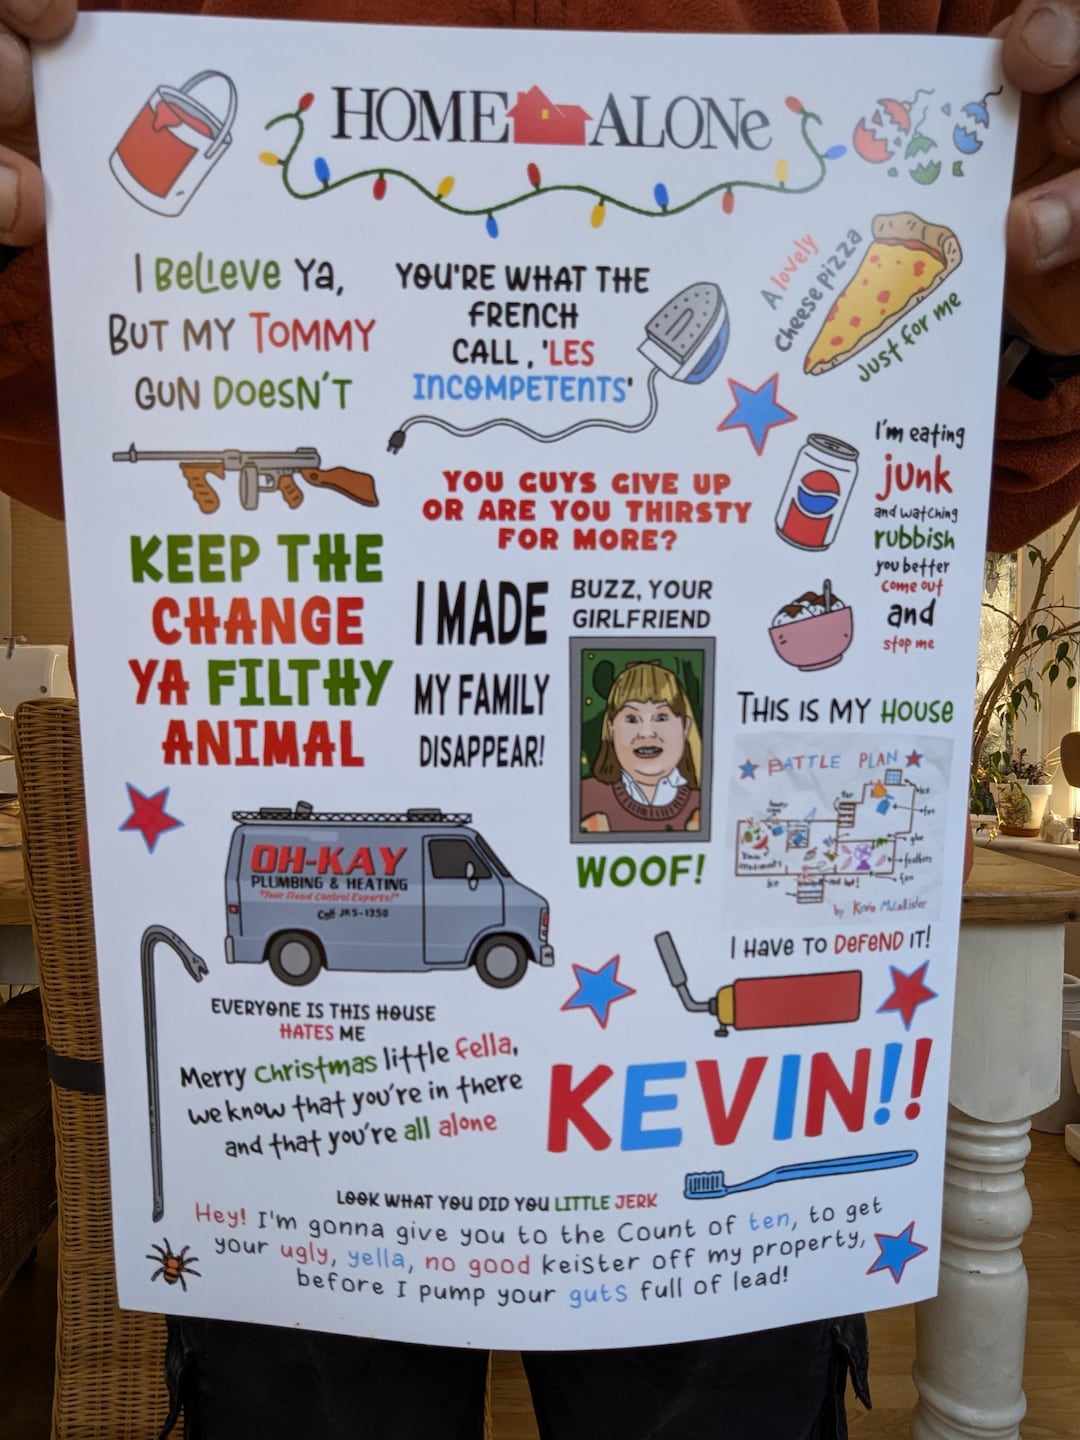 HOME ALONe
I BeLieve Ya,
BUT MY TOMMY
GUN DOESN'T
YOU'RE WHAT THE
FRENCH
CALL , 'LES
INCOMPETENTS'
A lovely
Cheese pizza
Just for me
I'm eating
junk
and watching
rubbish
you better
come out
and
stop me
YOU GUYS GIVE UP
OR ARE YOU THIRSTY
FOR MORE?
KEEP THE
CHANGE
YA FILTHY
ANIMAL
I MADE
MY FAMILY
DISAPPEAR!
BUZZ, YOUR
GIRLFRIEND
WOOF!
THIS IS MY HOUSE
BATTLE PLAN
ice
tar
glue
feathers
fan
ice
by Kevin McCallister
I HAVE TO DEFEND IT!
OH-KAY
PLUMBING & HEATING
"Your Flood Control Experts!"
Call JKS-1350
EVERYONE IS THIS HOUSE
HATES ME
Merry Christmas little fella,
we know that you're in there
and that you're all alone
KEVIN!!
LOOK WHAT YOU DID YOU LITTLE JERK
Hey! I'm gonna give you to the Count of ten, to get
your ugly, yella, no good keister off my property,
before I pump your guts full of lead!